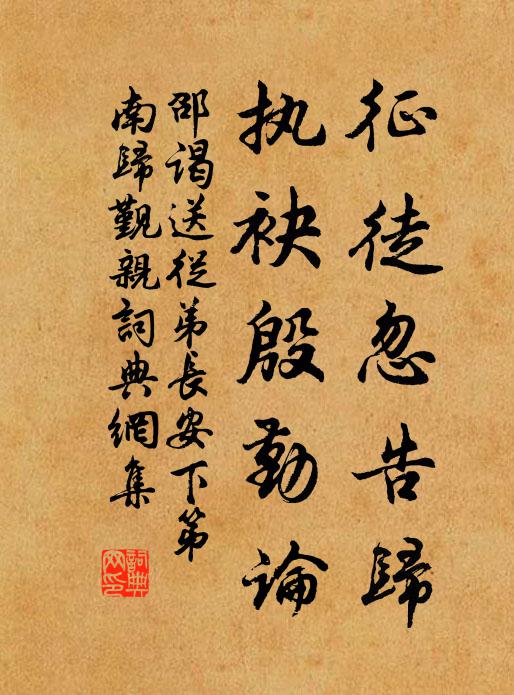 征徒忽告歸
执袂殷勤論
邵谒送従弟長安下第
南歸觐親詞典網集
詞典网印